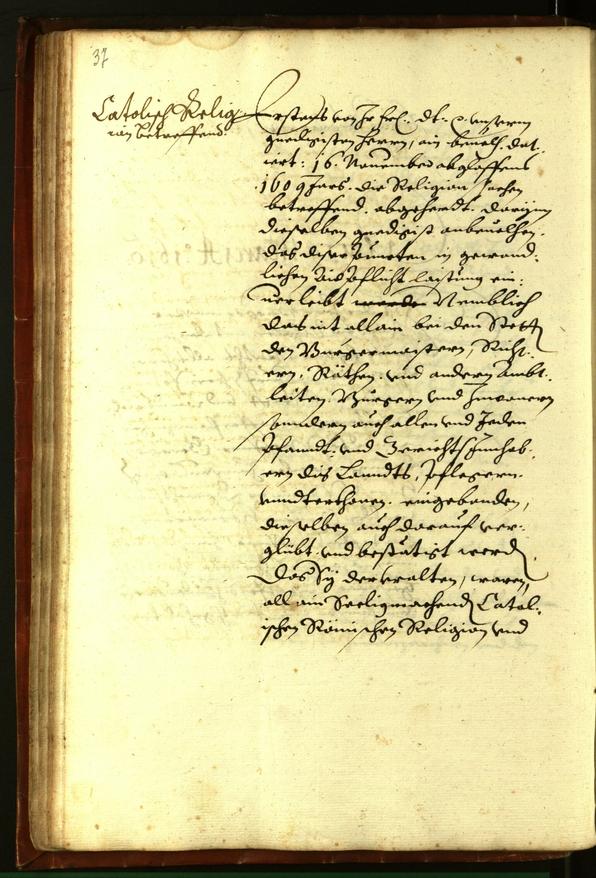 37
Catolisch Relig-
ion betreffend.
Erstens von Ir Frl: Dt: p. unserm
gnedigisten Herrn, ain bevelh. dat:
iert: 16. Novembris abgloffens
1609 Jars. die Religion sachen
betreffend. abgehendt. darinn
dieselben gnedigist anbevelhen.
das diser Puncten in gewond:
lichen Aidspflicht laistung ein:
verleibt werden Nemblich
das nit allain bei den Stett
den Burgermaistern, Richt:
ern, Räthen. und andern Ambt:
leiten. Burgern und Inwonern
sondern auch allen und Jeden
Pfandt: und Gerichts Innhab:
ern des Lanndts, Pflegern.
unndterthonen. eingebonden,
dieselben auch darauf ver:
glübt. und bestätiget werden
Das Sy der uralten, waren,
allain Seeligmachenden Catol:
ischen Römischen Religion und